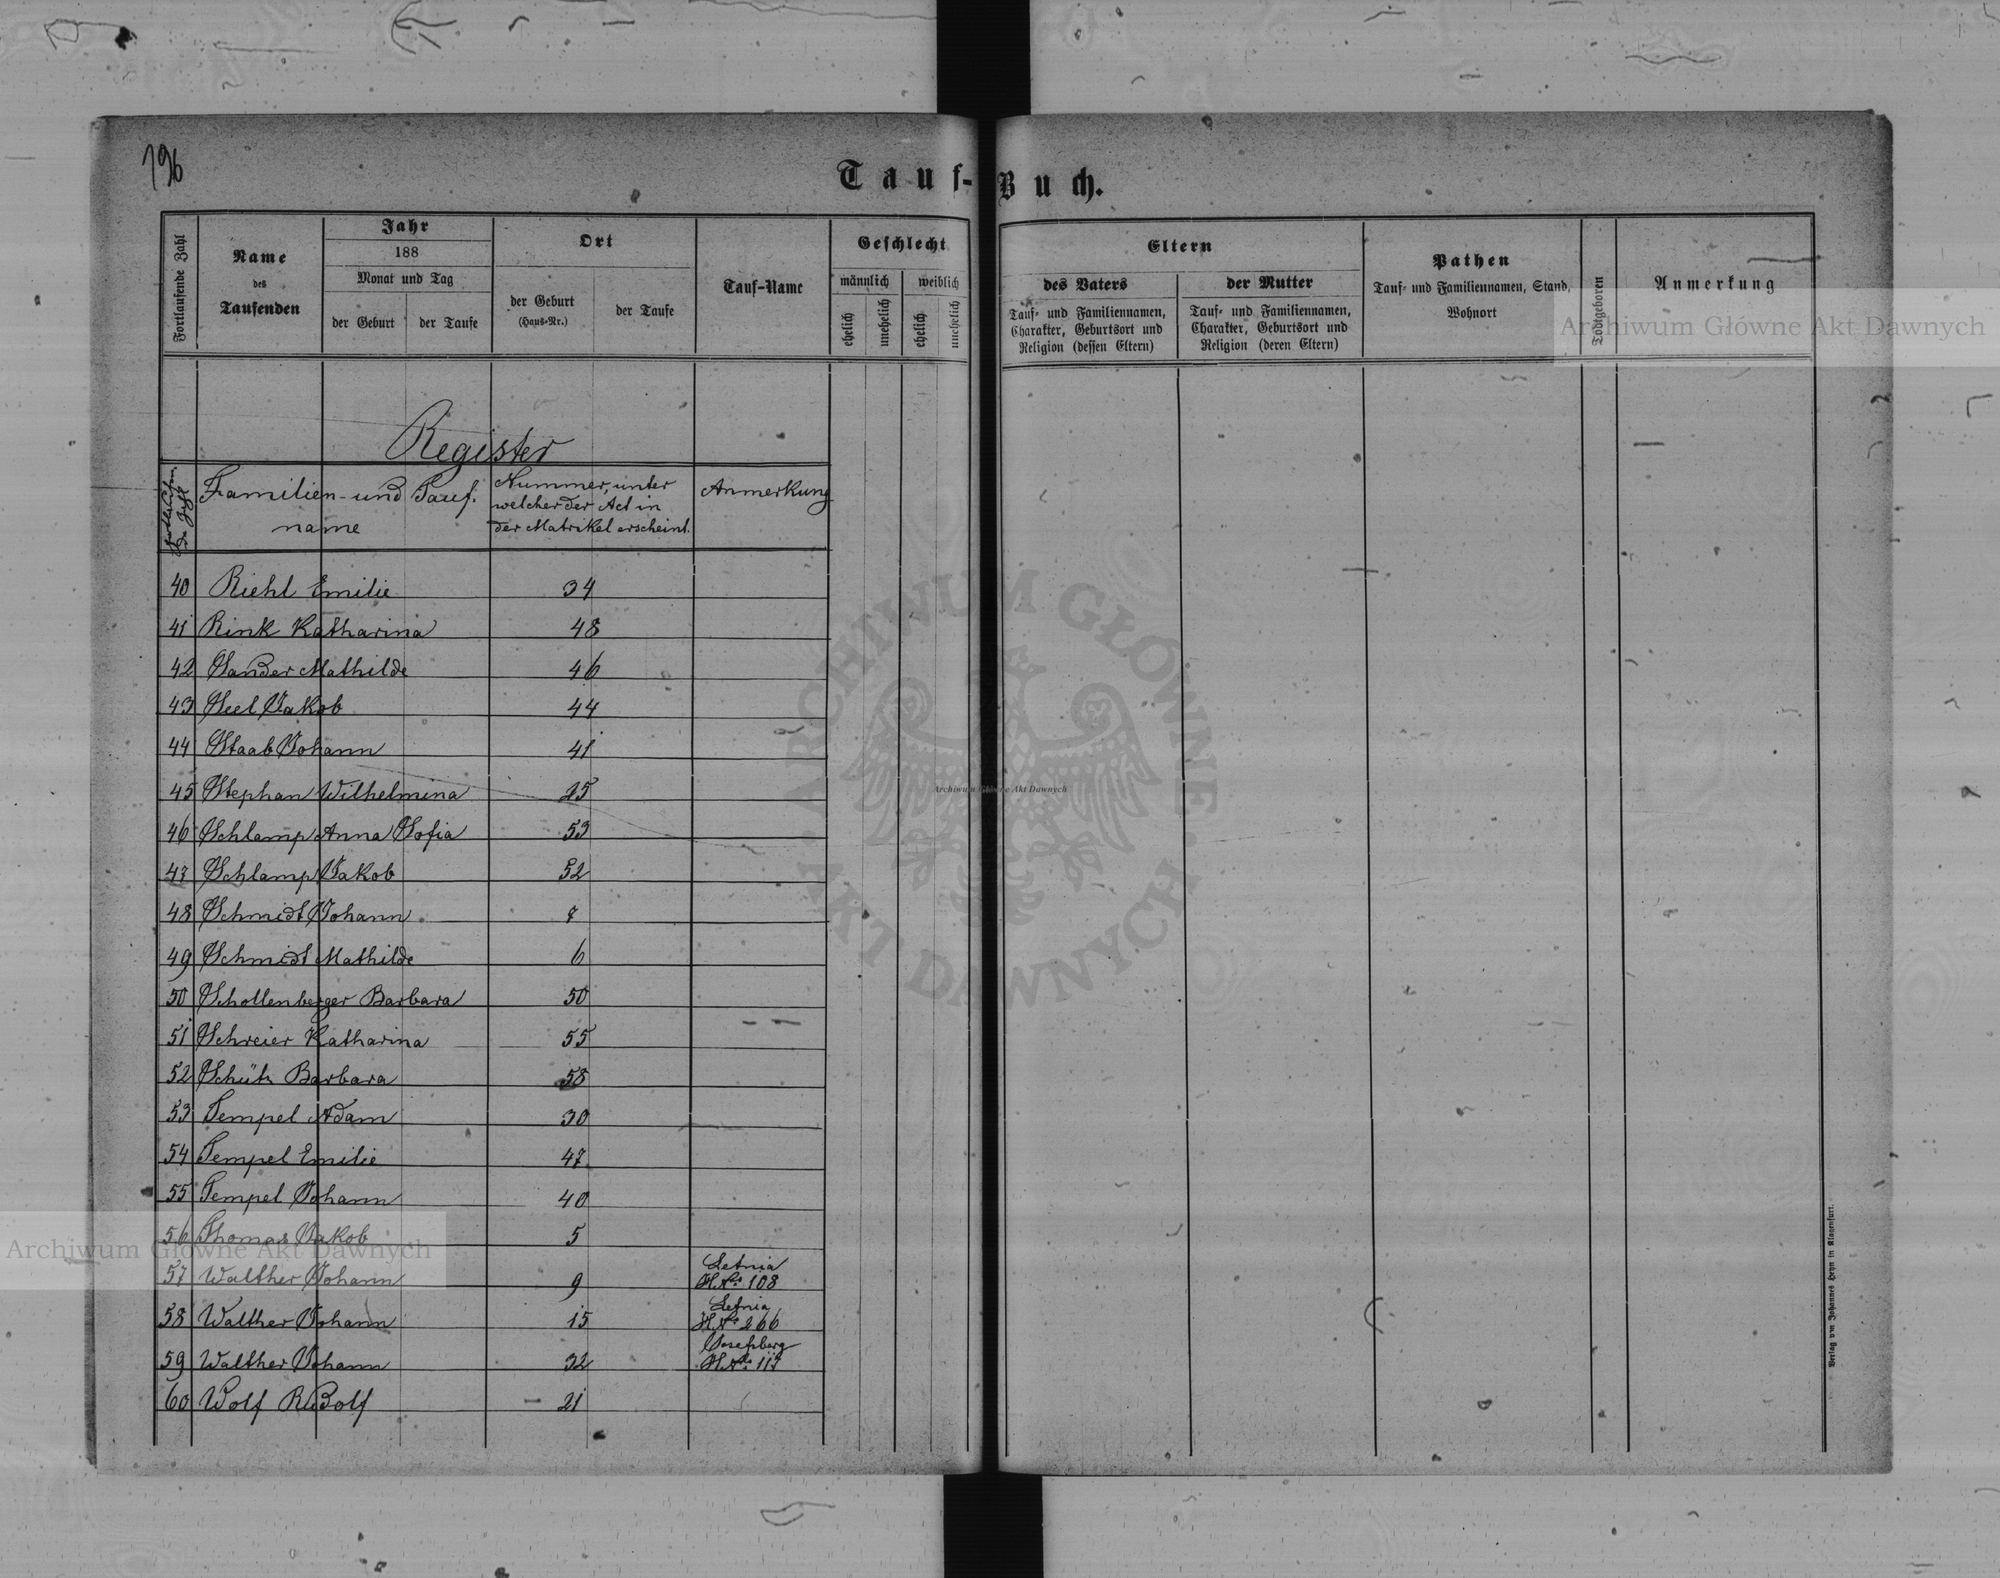 196
Tauf-Buch.
Fortlaufende Zahl
Name
des
Taufenden
Jahr
188
Monat und Tag
der Geburt
der Taufe
Ort
der Geburt
(Haus-Nr.)
der Taufe
Tauf-Name
Geschlecht
männlich
weiblich
ehelich
unehelich
ehelich
unehelich
Eltern
des Vaters
Tauf- und Familiennamen,
Charakter, Geburtsort und
Religion (dessen Eltern)
der Mutter
Tauf- und Familiennamen,
Charakter, Geburtsort und
Religion (deren Eltern)
Pathen
Tauf- und Familiennamen, Stand,
Wohnort
Todtgeboren
Anmerkung
Archiwum Główne Akt Dawnych
Register
Familien- und Tauf-
name
Nummer, unter
welcher der Act in
der Matrikel erscheint.
Anmerkung
40 Riehl Emilie 34
41 Rink Katharina 48
42 Sander Mathilde 46
43 Seel Jakob 44
44 Staab Johann 41
45 Stephan Wilhelmina 25
46 Schlamp Anna Sofia 53
47 Schlamp Jakob 52
48 Schmidt Johann 7
49 Schmidt Mathilde 6
50 Schollenberger Barbara 50
51 Schreier Katharina 55
52 Schütz Barbara 58
53 Tempel Adam 30
54 Tempel Emilie 47
55 Tempel Johann 40
56 Thomas Jakob 5
57 Walther Johann 9 Letnia
H.No. 108
58 Walther Johann 15 Letnia
H.No. 266
59 Walther Johann 32 Josefsberg
H.No. 117
60 Wolf Rudolf 21
ARCHIWUM GŁÓWNE AKT DAWNYCH
Archiwum Główne Akt Dawnych
Archiwum Główne Akt Dawnych
Verlag von Johannes Heyn in Klagenfurt.